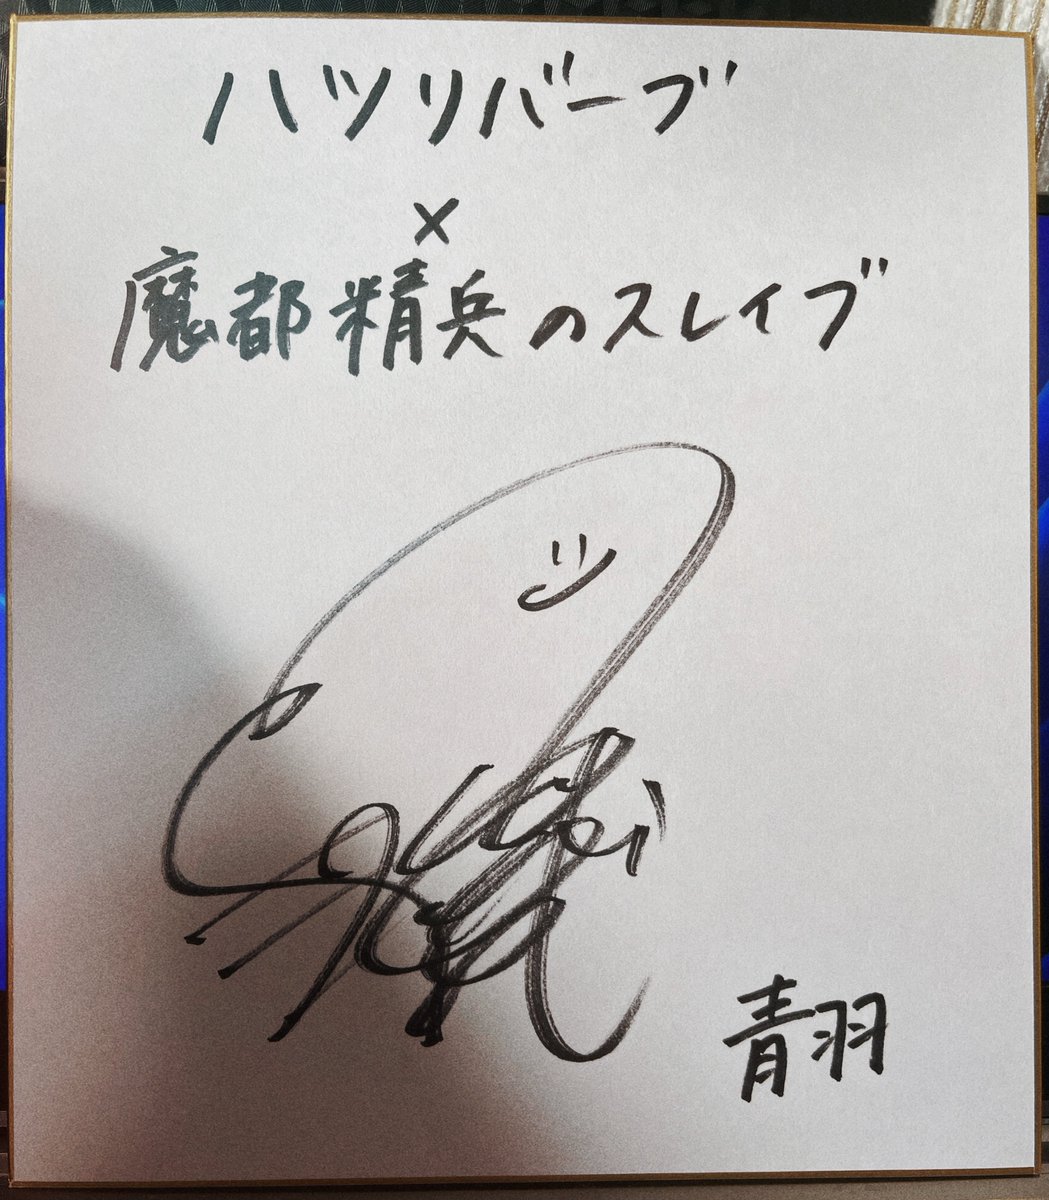 ハツリバーブ
×
魔都精兵のスレイブ
青羽